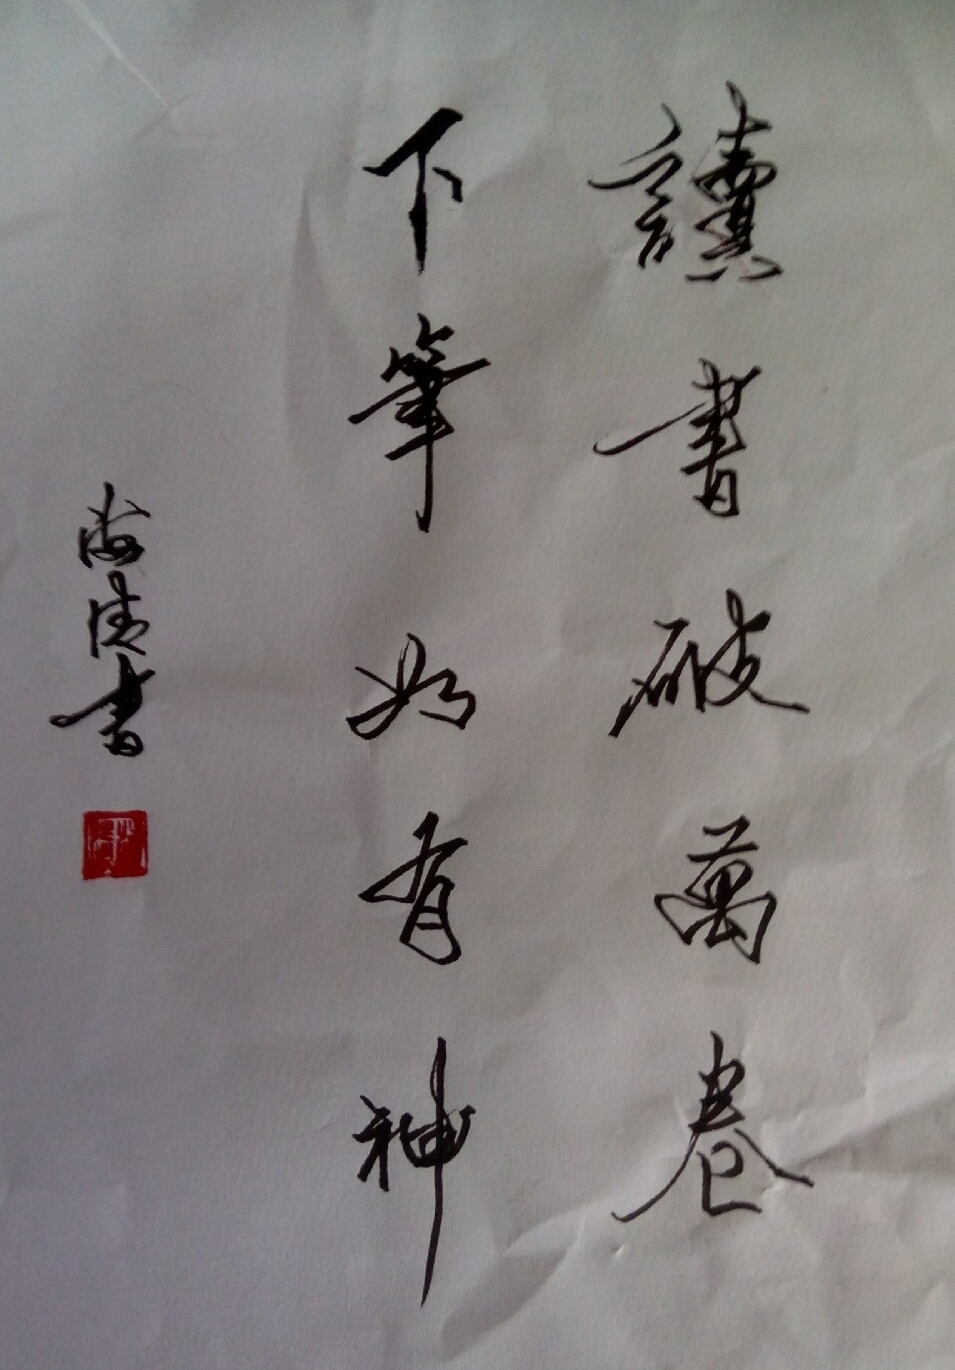 讀書破萬卷
下筆如有神
海清書